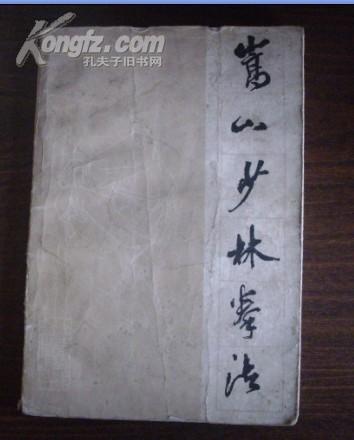 Kongfz.com
孔夫子旧书网
嵩山少林拳法